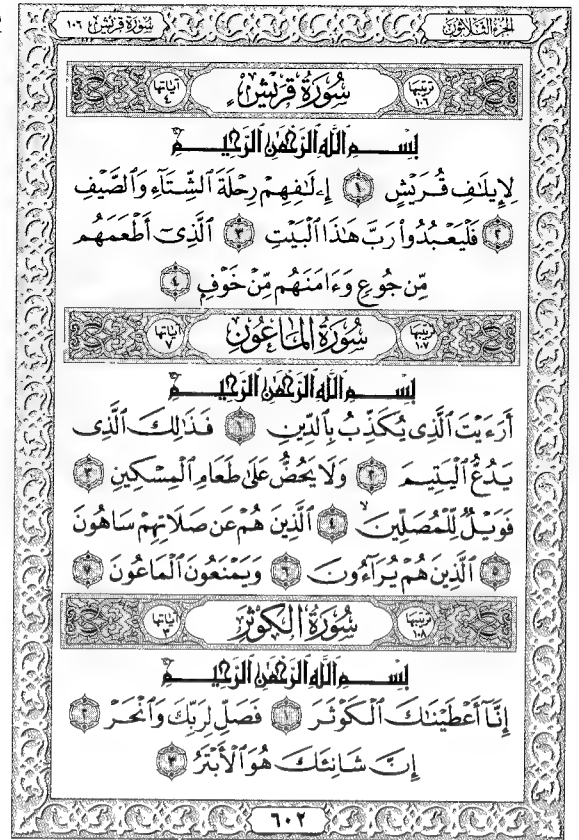 الجزء الثلاثون سورة قريش ١٠٦
ترتيبها ١٠٦ سُورَةُ قُرَيْشٍ آياتها ٤
بِسْمِ اللَّهِ الرَّحْمَٰنِ الرَّحِيمِ
لِإِيلَٰفِ قُرَيْشٍ ١ إِۦلَٰفِهِمْ رِحْلَةَ ٱلشِّتَآءِ وَٱلصَّيْفِ
٢ فَلْيَعْبُدُوا۟ رَبَّ هَٰذَا ٱلْبَيْتِ ٣ ٱلَّذِىٓ أَطْعَمَهُم
مِّن جُوعٍ وَءَامَنَهُم مِّنْ خَوْفٍۭ ٤
ترتيبها ١٠٧ سُورَةُ المَاعُونِ آياتها ٧
بِسْمِ اللَّهِ الرَّحْمَٰنِ الرَّحِيمِ
أَرَءَيْتَ ٱلَّذِى يُكَذِّبُ بِٱلدِّينِ ١ فَذَٰلِكَ ٱلَّذِى
يَدُعُّ ٱلْيَتِيمَ ٢ وَلَا يَحُضُّ عَلَىٰ طَعَامِ ٱلْمِسْكِينِ ٣
فَوَيْلٌ لِّلْمُصَلِّينَ ٤ ٱلَّذِينَ هُمْ عَن صَلَاتِهِمْ سَاهُونَ
٥ ٱلَّذِينَ هُمْ يُرَآءُونَ ٦ وَيَمْنَعُونَ ٱلْمَاعُونَ ٧
ترتيبها ١٠٨ سُورَةُ الكَوْثَرِ آياتها ٣
بِسْمِ اللَّهِ الرَّحْمَٰنِ الرَّحِيمِ
إِنَّآ أَعْطَيْنَٰكَ ٱلْكَوْثَرَ ١ فَصَلِّ لِرَبِّكَ وَٱنْحَرْ ٢
إِنَّ شَانِئَكَ هُوَ ٱلْأَبْتَرُ ٣
٦٠٢